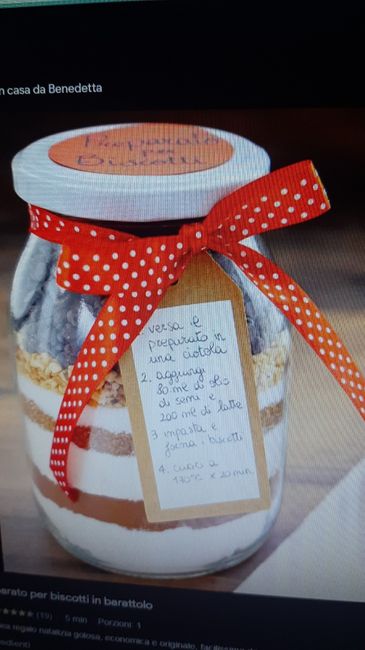 n casa da Benedetta
Preparato
per
Biscotti
1. versa il
preparato in
una ciotola
2. aggiungi
80 ml di olio
di semi e
200 ml di latte
3 impasta e
forma i biscotti
4. cuoci a
170°C x 20 min
parato per biscotti in barattolo
(19) 5 min Porzioni: 1
idea regalo natalizia golosa, economica e originale,
edienti)